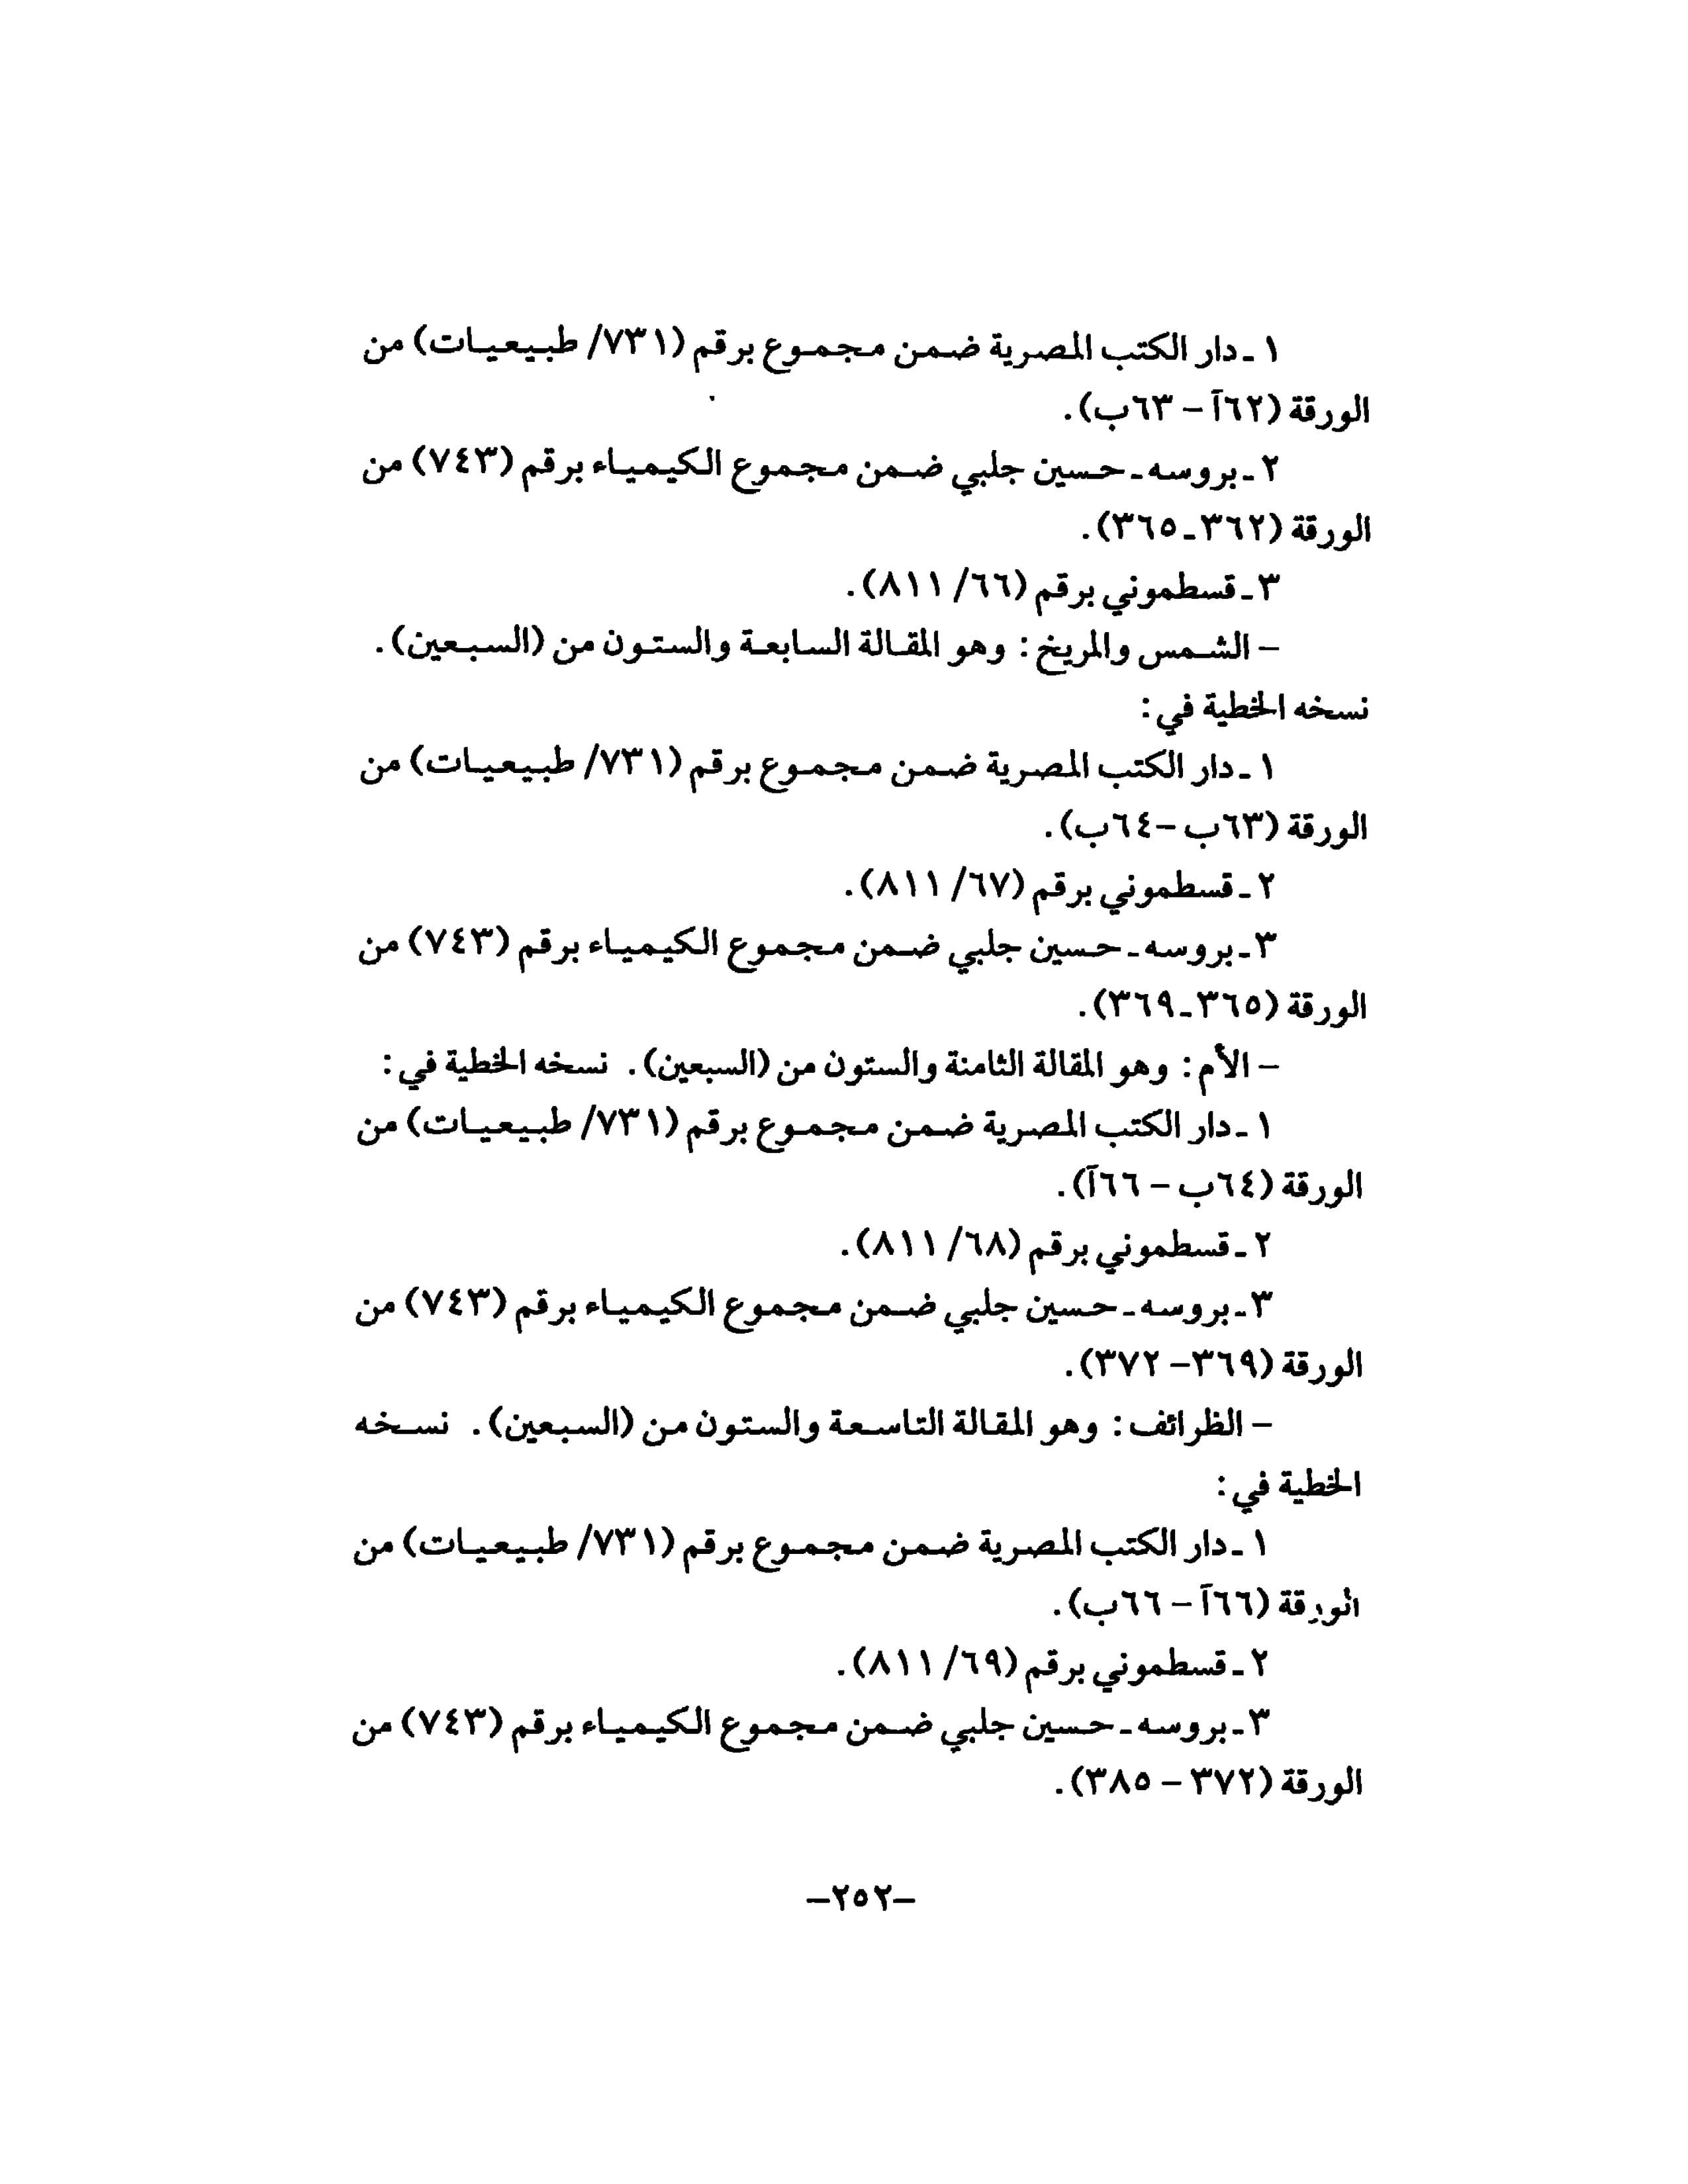 ١ ـ دار الكتب المصرية ضمن مجموع برقم (٧٣١/ طبيعيات) من
الورقة (٦٢آ – ٦٣ب).
٢ ـ بروسه ـ حسين جلبي ضمن مجموع الكيمياء برقم (٧٤٣) من
الورقة (٣٦٢ـ٣٦٥).
٣ ـ قسطموني برقم (٦٦/ ٨١١).
– الشمس والمريخ: وهو المقالة السابعة والستون من (السبعين).
نسخه الخطية في:
١ ـ دار الكتب المصرية ضمن مجموع برقم (٧٣١/ طبيعيات) من
الورقة (٦٣ب –٦٤ب).
٢ ـ قسطموني برقم (٦٧/ ٨١١).
٣ ـ بروسه ـ حسين جلبي ضمن مجموع الكيمياء برقم (٧٤٣) من
الورقة (٣٦٥ـ٣٦٩).
– الأم: وهو المقالة الثامنة والستون من (السبعين). نسخه الخطية في:
١ ـ دار الكتب المصرية ضمن مجموع برقم (٧٣١/ طبيعيات) من
الورقة (٦٤ب – ٦٦آ).
٢ ـ قسطموني برقم (٦٨/ ٨١١).
٣ ـ بروسه ـ حسين جلبي ضمن مجموع الكيمياء برقم (٧٤٣) من
الورقة (٣٦٩– ٣٧٢).
– الظرائف: وهو المقالة التاسعة والستون من (السبعين). نسخه
الخطية في:
١ ـ دار الكتب المصرية ضمن مجموع برقم (٧٣١/ طبيعيات) من
الورقة (٦٦آ – ٦٦ب).
٢ ـ قسطموني برقم (٦٩/ ٨١١).
٣ ـ بروسه ـ حسين جلبي ضمن مجموع الكيمياء برقم (٧٤٣) من
الورقة (٣٧٢ – ٣٨٥).
–٢٥٢–